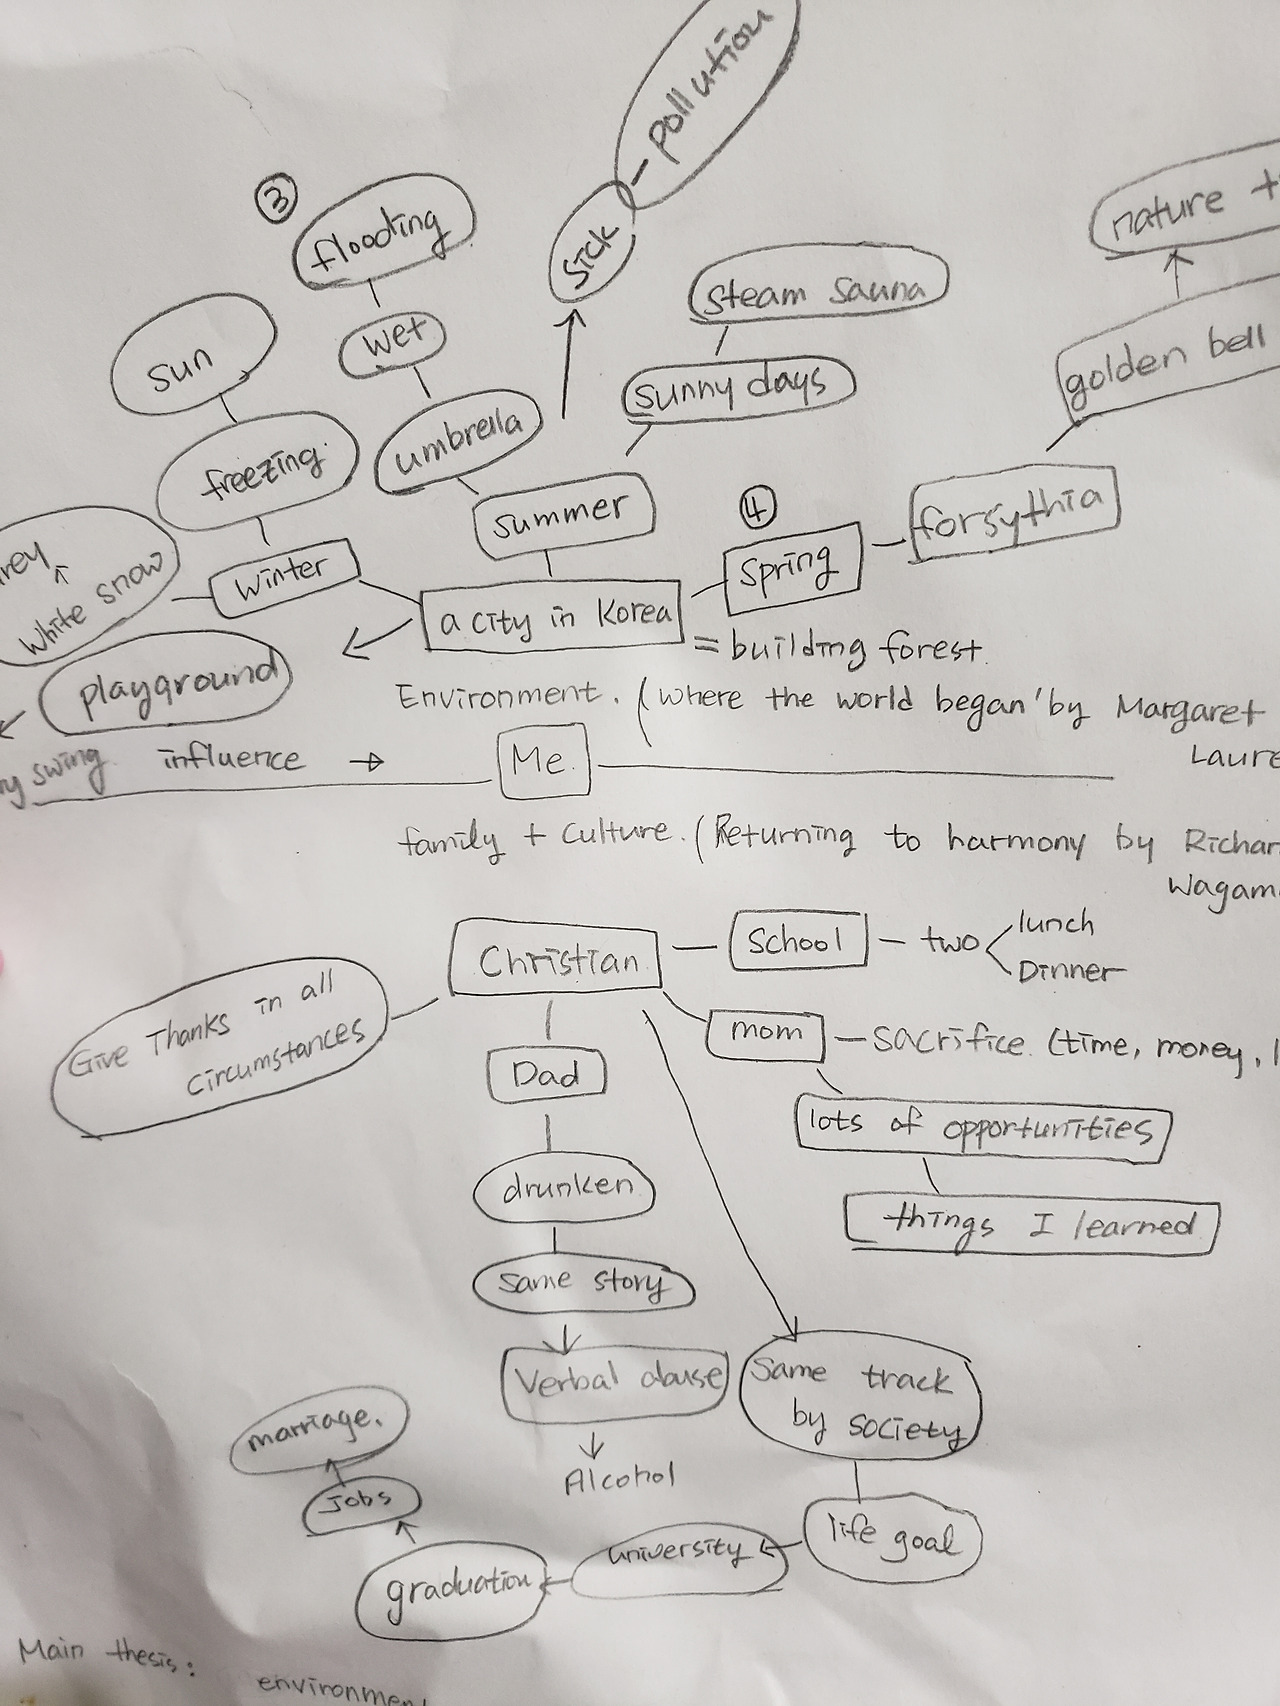 pollution
sick
③
flooding
nature +
steam sauna
wet
sun
sunny days
golden bell
umbrella
freezing
④
summer
forsythia
spring
winter
white snow
a city in Korea
= building forest.
playground
Environment. (where the world began' by Margaret
swing influence → Me.
family + culture. (Returning to harmony by
Christian
school — two
lunch
Dinner
Give Thanks in all
circumstances
mom — sacrifice. (time, money,
Dad
lots of opportunities
drunken
things I learned
same story
Verbal abuse
same track
by society
marriage.
Alcohol
Jobs
life goal
university
graduation
Main thesis: